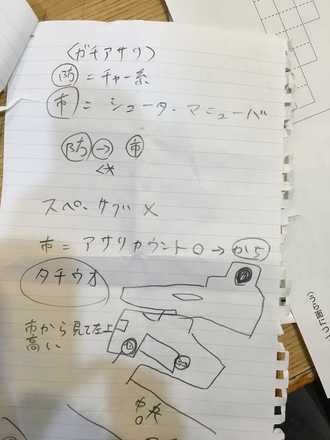 (ガチアサリ)
防 = チャー系
市 = シューター・マニューバ
防 → 市
スペ・サブ ×
市 = アサリカウント○ → から
タチウオ
市から見て左上
高い
中央